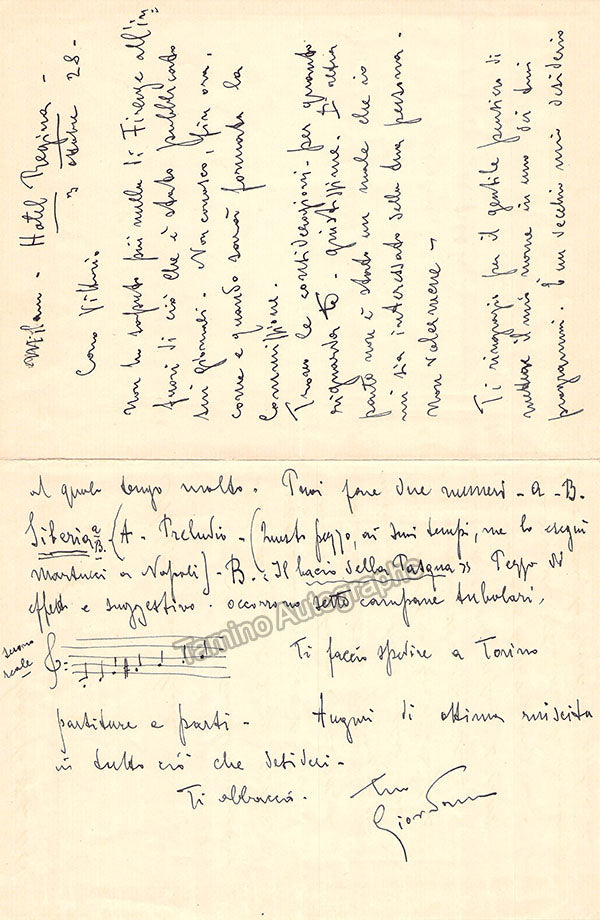 Milano - Hotel Regina -
3 ottobre 28 -
Caro Vittorio
Non ho saputo più nulla di Firenze all'in=
fuori di ciò che è stato pubblicato
sui giornali. Non conosco, fin ora,
come e quando sarà formata la
Commissione.
Trovo le considerazioni - per quanto
riguarda te - giustissime. D'altra
parte non è stato un male che io
mi sia interessato della tua persona.
Ti ringrazio per il gentile pensiero di
mettere il mio nome in uno dei tuoi
programmi. È un vecchio mio desiderio
al quale tengo molto. Puoi fare due numeri - A - B.
Siberia A B. (A - Preludio - (Questo pezzo, ai suoi tempi, me lo eseguì
Martucci a Napoli) - B. : Il bacio della Pasqua » Pezzo di
effetto e suggestivo. occorrono sette campane tubolari,
suono
reale
Ti faccio spedire a Torino
partiture e parti - Auguri di ottima riuscita
in tutto ciò che desideri -
Ti abbraccio. Tuo
Giordano
Tamino Autographs